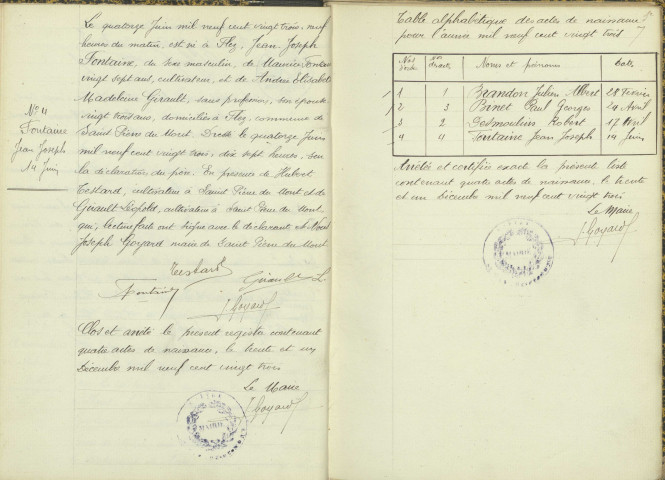 Le quatorze Juin mil neuf cent vingt trois, neuf
heures du matin, est né à Flez, Jean Joseph
Fontaine, du sexe masculin, de Maurice Fontaine
vingt sept ans, cultivateur, et de Andrée Elisabet
Madeleine Girault, sans profession, son épouse
vingt trois ans, domiciliés à Flez, commune de
Saint Pierre du Mont. Dressé le quatorze Juin
mil neuf cent vingt trois, dix sept heures, sur
la déclaration du père. En présence de Hubert
Testard, cultivateur à Saint Pierre du Mont et de
Girault Léopold, cultivateur à Saint Pierre du Mont
qui, lecture faite ont signé avec le déclarant et Nous
Joseph Goyard maire de Saint Pierre du Mont
N° 4
Fontaine
Jean Joseph
14 Juin
Testard
Fontaine Girault L
J Goyard
Clos et arrêté le présent registre contenant
quatre actes de naissance, le trente et un
Décembre mil neuf cent vingt trois
Le Maire
J Goyard
MAIRIE
Table alphabétique des actes de naissance
pour l'année mil neuf cent vingt trois
Nos Noms et prénoms Date
1 1 Brandon Julien Albert 28 Février
2 3 Binet Paul Georges 24 Avril
3 2 Desmoulins Robert 17 Avril
4 4 Fontaine Jean Joseph 14 Juin
Arrêtée et certifiée exacte la présente liste
contenant quatre actes de naissance, le trente
et un décembre mil neuf cent vingt trois
Le Maire
J Goyard
MAIRIE